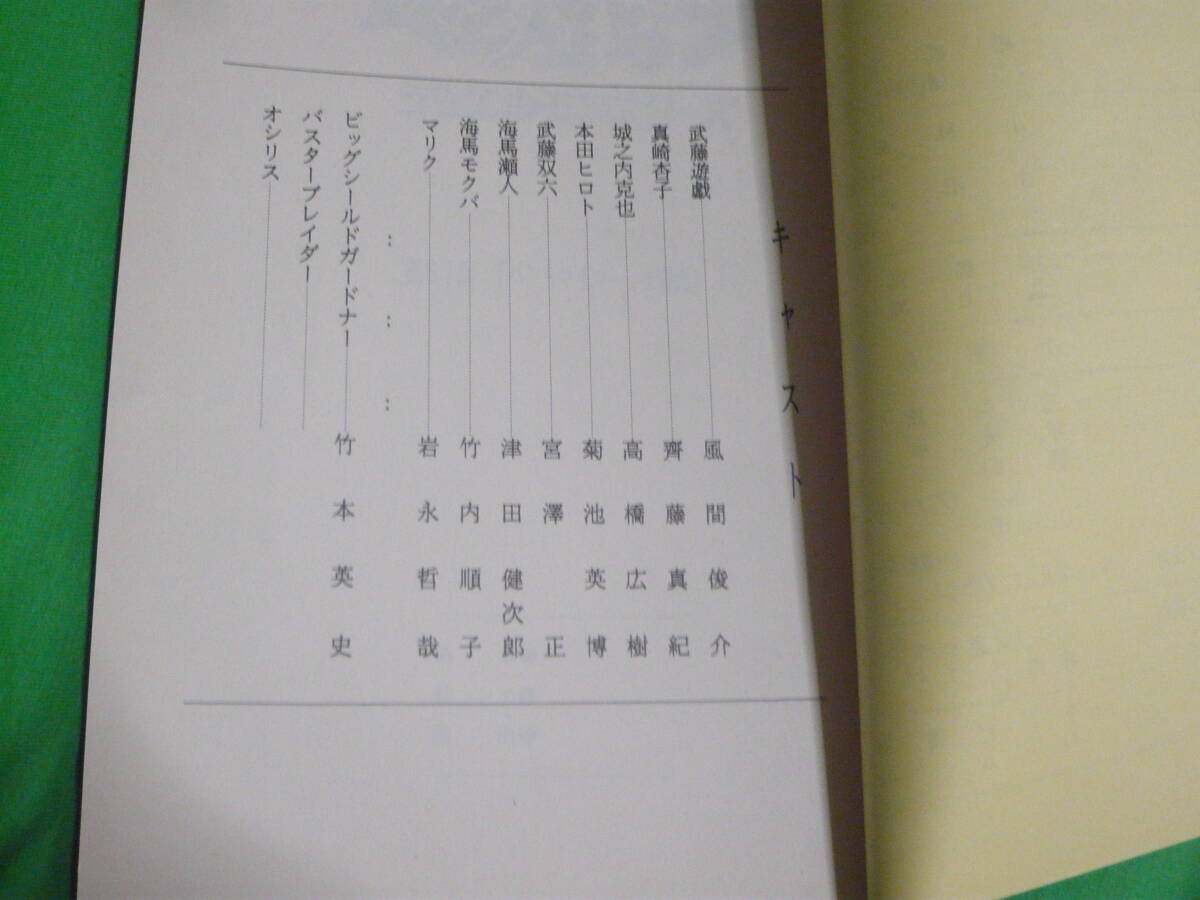 キャスト
武藤遊戯………風間俊介
真崎杏子………齊藤真紀
城之内克也………高橋広樹
本田ヒロト………菊池英博
武藤双六………宮澤正
海馬瀬人………津田健次郎
海馬モクバ………竹内順子
マリク………岩永哲哉
：　：　：
ビッグシールドガードナー………竹本英史
バスターブレイダー………
オシリス………